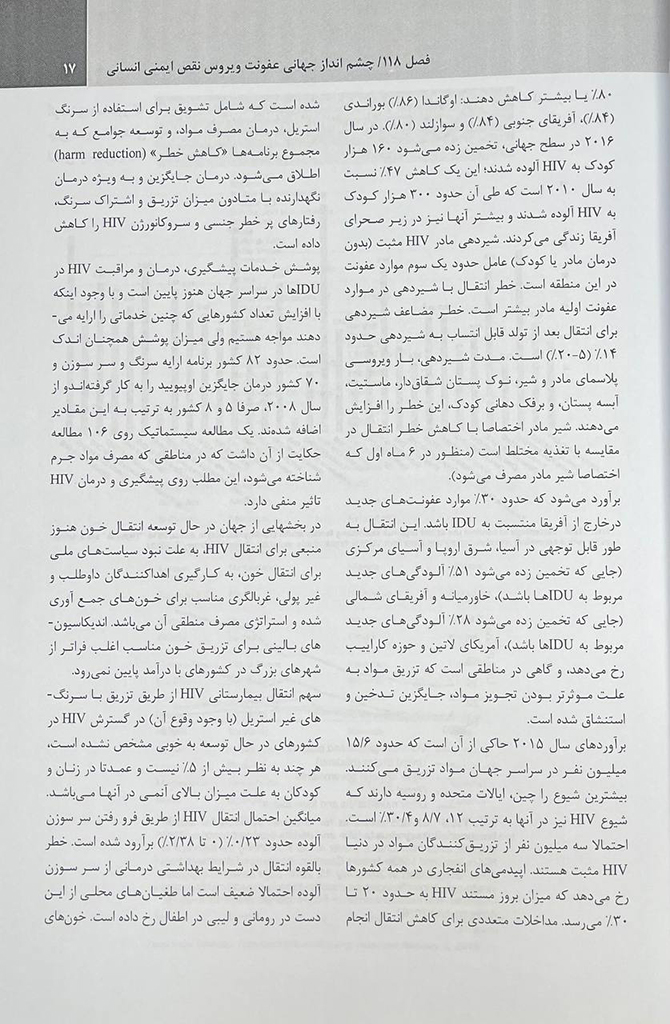 فصل ۱۱۸/ چشم انداز جهانی عفونت ویروس نقص ایمنی انسانی ۱۷
۸۰٪ یا بیشتر کاهش دهند: اوگاندا (۸۶٪) بوراندی
(۸۴٪)، آفریقای جنوبی (۸۴٪) و سوازلند (۸۰٪). در سال
۲۰۱۶ در سطح جهانی، تخمین زده می‌شود ۱۶۰ هزار
کودک به HIV آلوده شدند؛ این یک کاهش ۴۷٪ نسبت
به سال ۲۰۱۰ است که طی آن حدود ۳۰۰ هزار کودک
به HIV آلوده شدند و بیشتر آنها نیز در زیر صحرای
آفریقا زندگی می‌کردند. شیردهی مادر HIV مثبت (بدون
درمان مادر یا کودک) عامل حدود یک سوم موارد عفونت
در این منطقه است. خطر انتقال با شیردهی در موارد
عفونت اولیه مادر بیشتر است. خطر مضاعف شیردهی
برای انتقال بعد از تولد قابل انتساب به شیردهی حدود
۱۴٪ (۵-۲۰٪) است. مدت شیردهی، بار ویروسی
پلاسمای مادر و شیر، نوک پستان شقاق‌دار، ماستیت،
آبسه پستان، و برفک دهانی کودک، این خطر را افزایش
می‌دهند. شیر مادر اختصاصا با کاهش خطر انتقال در
مقایسه با تغذیه مختلط است (منظور در ۶ ماه اول که
اختصاصا شیر مادر مصرف می‌شود).
برآورد می‌شود که حدود ۳۰٪ موارد عفونت‌های جدید
درخارج از آفریقا منتسبت به IDU باشد. این انتقال به
طور قابل توجهی در آسیا، شرق اروپا و آسیای مرکزی
(جایی که تخمین زده می‌شود ۵۱٪ آلودگی‌های جدید
مربوط به IDUها باشد)، خاورمیانه و آفریقای شمالی
(جایی که تخمین زده می‌شود ۲۸٪ آلودگی‌های جدید
مربوط به IDUها باشد)، آمریکای لاتین و حوزه کاراییب
رخ می‌دهد، و گاهی در مناطقی است که تزریق مواد به
علت موثرتر بودن تجویز مواد، جایگزین تدخین و
استنشاق شده است.
برآوردهای سال ۲۰۱۵ حاکی از آن است که حدود ۱۵/۶
میلیون نفر در سراسر جهان مواد تزریق می‌کنند.
بیشترین شیوع را چین، ایالات متحده و روسیه دارند که
شیوع HIV نیز در آنها به ترتیب ۱۲، ۸/۷ و۳۰/۴٪ است.
احتمالا سه میلیون نفر از تزریق‌کنندگان مواد در دنیا
HIV مثبت هستند. اپیدمی‌های انفجاری در همه کشورها
رخ می‌دهد که میزان بروز مستند HIV به حدود ۲۰ تا
۳۰٪ می‌رسد. مداخلات متعددی برای کاهش انتقال انجام
شده است که شامل تشویق برای استفاده از سرنگ
استریل، درمان مصرف مواد، و توسعه جوامع که به
مجموع برنامه‌ها «کاهش خطر» (harm reduction)
اطلاق می‌شود. درمان جایگزین و به ویژه درمان
نگهدارنده با متادون میزان تزریق و اشتراک سرنگ،
رفتارهای پر خطر جنسی و سروکانورژن HIV را کاهش
داده است.
پوشش خدمات پیشگیری، درمان و مراقبت HIV در
IDUها در سراسر جهان هنوز پایین است و با وجود اینکه
با افزایش تعداد کشورهایی که چنین خدماتی را ارایه می-
دهند مواجه هستیم ولی میزان پوشش همچنان اندک
است. حدود ۸۲ کشور برنامه ارایه سرنگ و سر سوزن و
۷۰ کشور درمان جایگزین اوپیویید را به کار گرفته‌اندو از
سال ۲۰۰۸، صرفا ۵ و ۸ کشور به ترتیب به این مقادیر
اضافه شده‌ند. یک مطالعه سیستماتیک روی ۱۰۶ مطالعه
حکایت از آن داشت که در مناطقی که مصرف مواد جرم
شناخته می‌شود، این مطلب روی پیشگیری و درمان HIV
تاثیر منفی دارد.
در بخشهایی از جهان در حال توسعه انتقال خون هنوز
منبعی برای انتقال HIV، به علت نبود سیاست‌های ملی
برای انتقال خون، به کارگیری اهداکنندگان داوطلب و
غیر پولی، غربالگری مناسب برای خون‌های جمع آوری
شده و استراتژی مصرف منطقی آن می‌باشد. اندیکاسیون-
های بالینی برای تزریق خون مناسب اغلب فراتر از
شهرهای بزرگ در کشورهای با درآمد پایین نمی‌رود.
سهم انتقال بیمارستانی HIV از طریق تزریق با سرنگ-
های غیر استریل (با وجود وقوع آن) در گسترش HIV در
کشورهای در حال توسعه به خوبی مشخص نشده است،
هر چند به نظر بیش از ۵٪ نیست و عمدتا در زنان و
کودکان به علت میزان بالای آنمی در آنها می‌باشد.
میانگین احتمال انتقال HIV از طریق فرو رفتن سر سوزن
آلوده حدود ۰/۲۳٪ (۰ تا ۲/۳۸٪) برآورد شده است. خطر
بالقوه انتقال در شرایط بهداشتی درمانی از سر سوزن
آلوده احتمالا ضعیف است اما طغیان‌های محلی از این
دست در رومانی و لیبی در اطفال رخ داده است. خون‌های